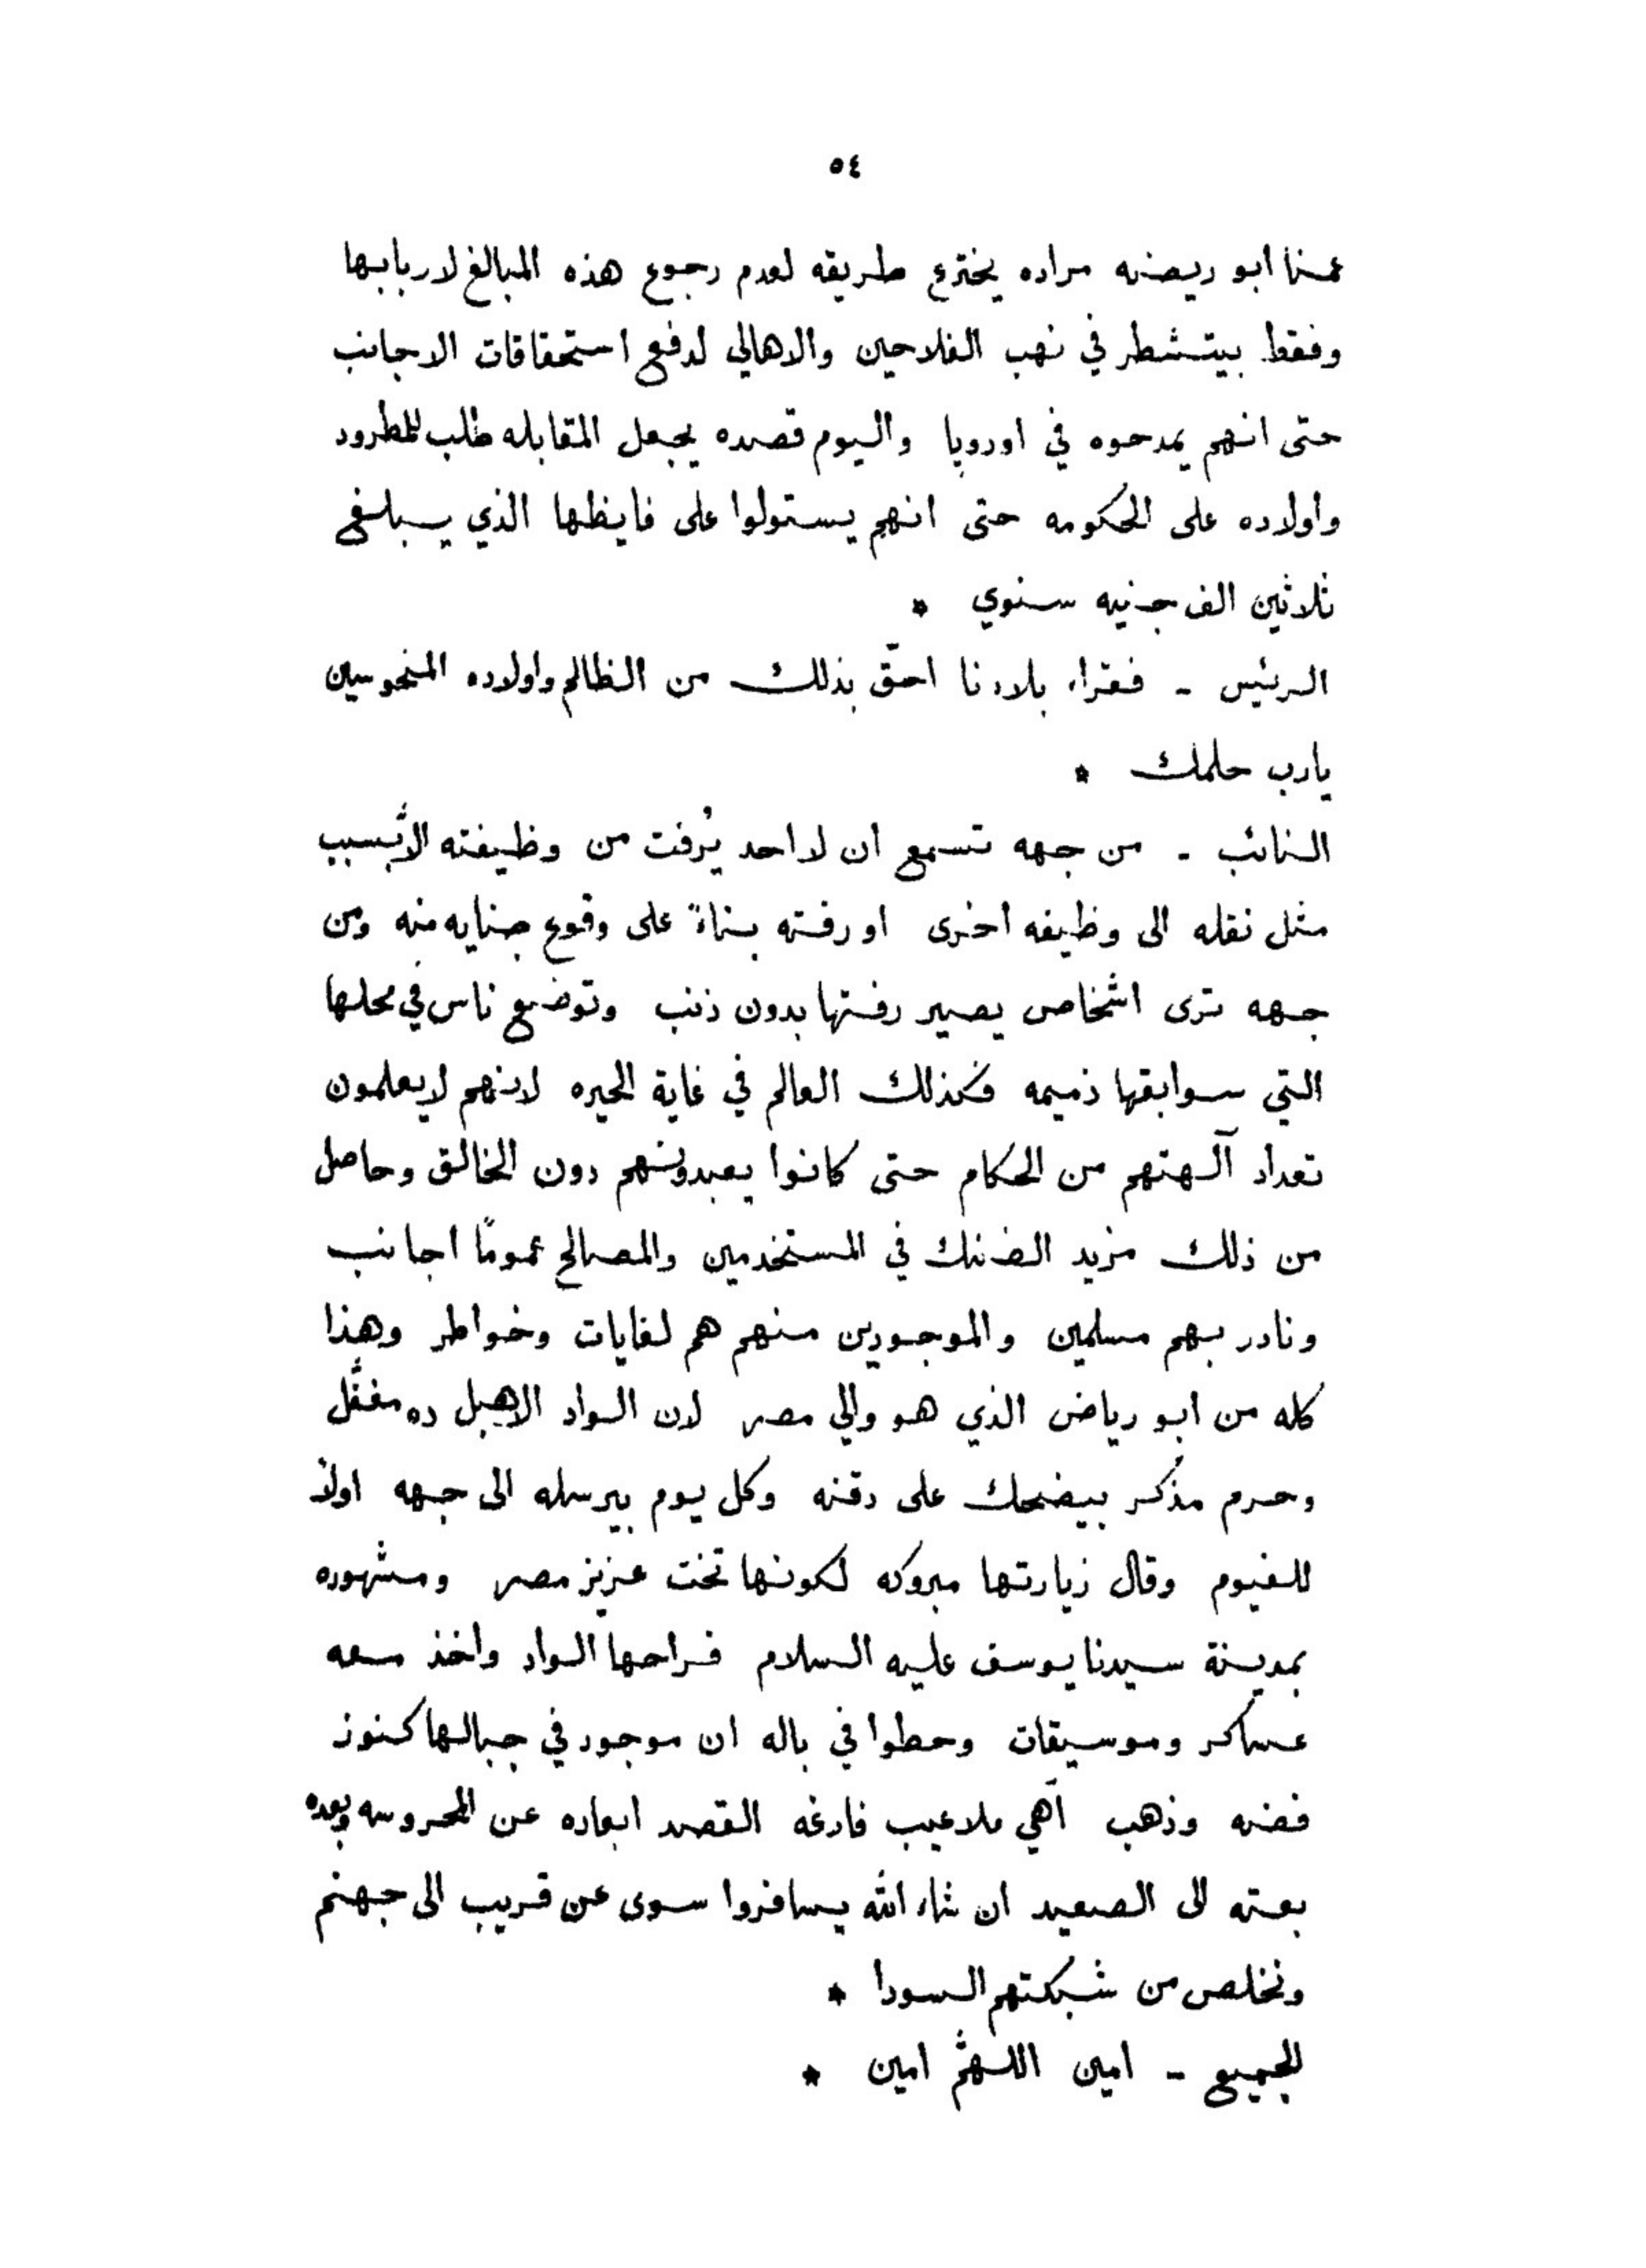 ٥٤
عمنا ابو ريضه مراده يخترع طريقه لعدم رجوع هذه المبالغ لاربابها
وفقط بيتشطر في نهب الفلاحين والاهالي لدفع استحقاقات الاجانب
حتى انهم يمدحوه في اوروپا واليوم قصده يجعل المقابله طلب للمطرود
واولاده على الحكومه حتى انهم يستولوا على فايظها الذي يبلغ
ثلاثين الف جنيه سنوي *
الرئيس - فقراء بلادنا احقّ بذلك من الظالم واولاده المنحوسين
يارب حلمك *
النائب - من جهه تسمع ان لا احد يُرفت من وظيفته الاّ بسبب
مثل نقله الى وظيفه اخرى او رفته بناءً على وقوع جنايه منه ومن
جهه ترى اشخاص يصير رفتها بدون ذنب وتوضع ناس في محلها
التي سوابقها ذميمه فكذلك العالم في غاية الحيره لانهم لا يعلمون
تعداد آلهتهم من الحكام حتى كانوا يعبدونهم دون الخالق وحاصل
من ذلك مزيد الضنك في المستخدمين والمصالح عمومًا اجانب
ونادر بهم مسلمين والموجودين منهم هم لغايات وخواطر وهذا
كله من ابو رياض الذي هو والي مصر لان الواد الاهبل ده مغفّل
وحرم مذكر بيضحك على دقنه وكل يوم بيرسله الى جهه اولاً
للفيوم وقال زيارتها مبروكه لكونها تخت عزيز مصر ومشهوره
بمدينة سيدنا يوسف عليه السلام فراحها الواد واخذ معه
عساكر وموسيقات وحطوا في باله ان موجود في جبالها كنوز
فضه وذهب آهي ملاعيب فارغه القصد ابعاده عن المحروسه وبعده
بعته الى الصعيد ان شاء الله يسافروا سوى عن قريب الى جهنم
ونخلص من شبكتهم السودا *
الجميع - امين اللهمّ امين *